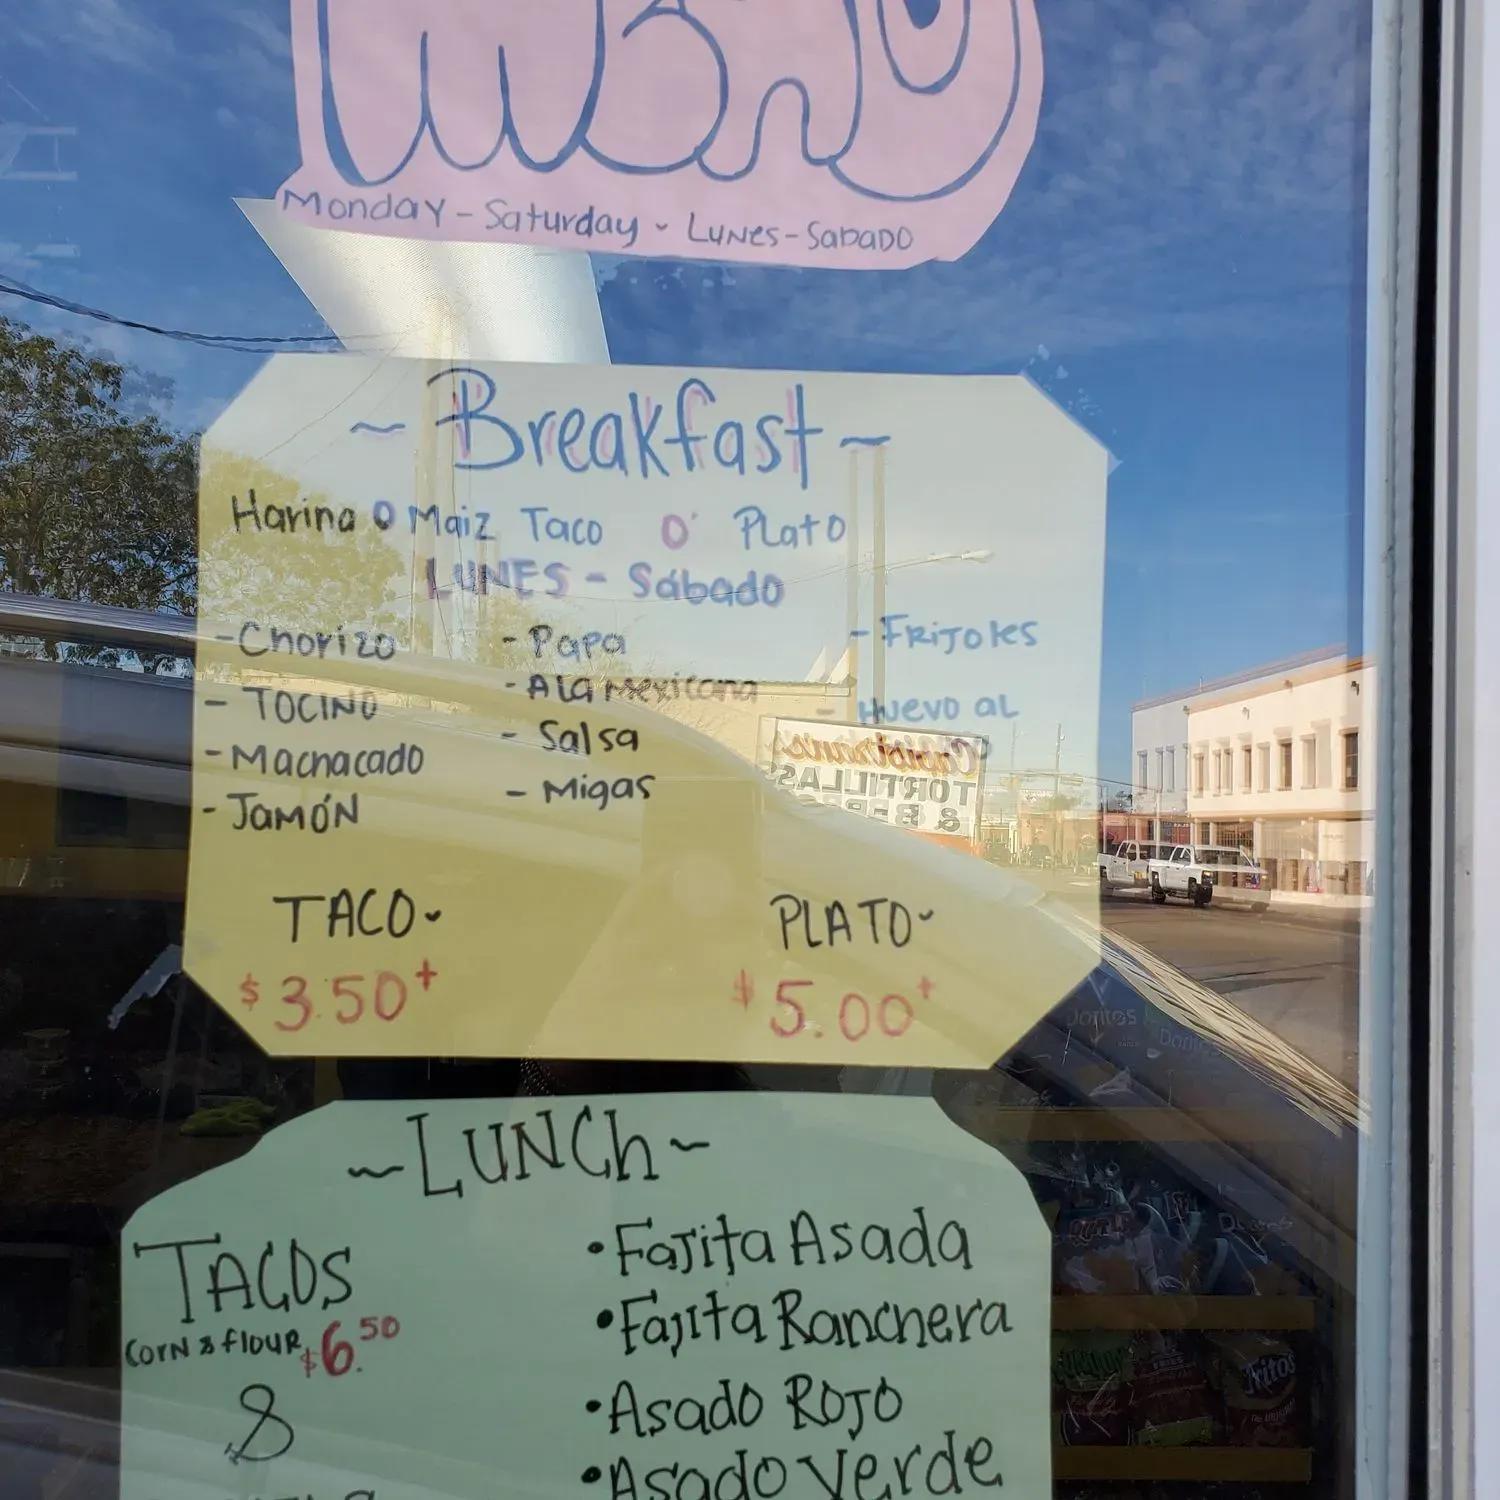 MENU
Monday - Saturday - Lunes - Sabado
~ Breakfast ~
Harina O Maiz Taco O' Plato
LUNES - Sábado
- Chorizo
- TOCINO
- Machacado
- JAMÓN
- Papa
- A la Mexicana
- Salsa
- Migas
- FRIJOLES
- HUEVO AL
TACO~
$3.50+
PLATO~
$5.00+
~ LUNCh ~
TACOS
CORN & flOUR $6.50
&
• Fajita Asada
• Fajita Ranchera
• Asado ROJO
• Asado Verde
TORTILLAS
&
Doritos
Doritos
Doritos
Fritos